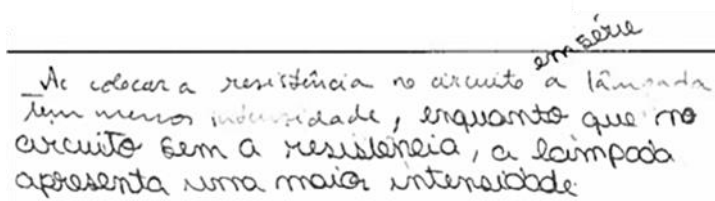 em série
Ao colocar a resistência no circuito a lâmpada
tem menos intensidade, enquanto que no
circuito sem a resistência, a lâmpada
apresenta uma maior intensidade